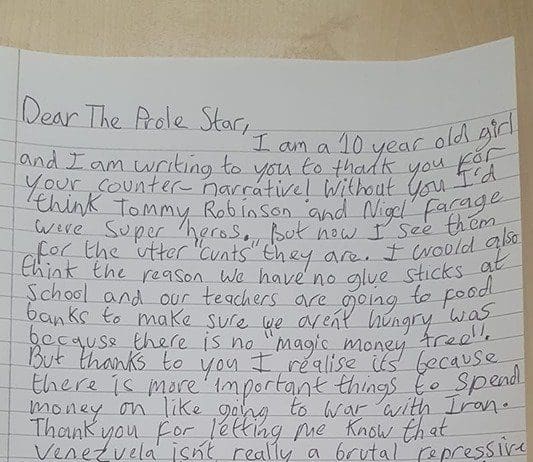 Dear The Prole Star,
I am a 10 year old girl
and I am writing to you to thank you for
your counter-narrative! Without you I'd
think Tommy Robinson and Nigel Farage
were Super heros. But now I see them
for the utter "cunts" they are. I would also
think the reason we have no glue sticks at
School and our teachers are going to food
banks to make sure we arent hungry was
because there is no "magic money tree".
But thanks to you I realise its because
there is more important things to spend
money on like going to war with Iran.
Thank you for letting me know that
Venezuela isn't really a brutal repressive